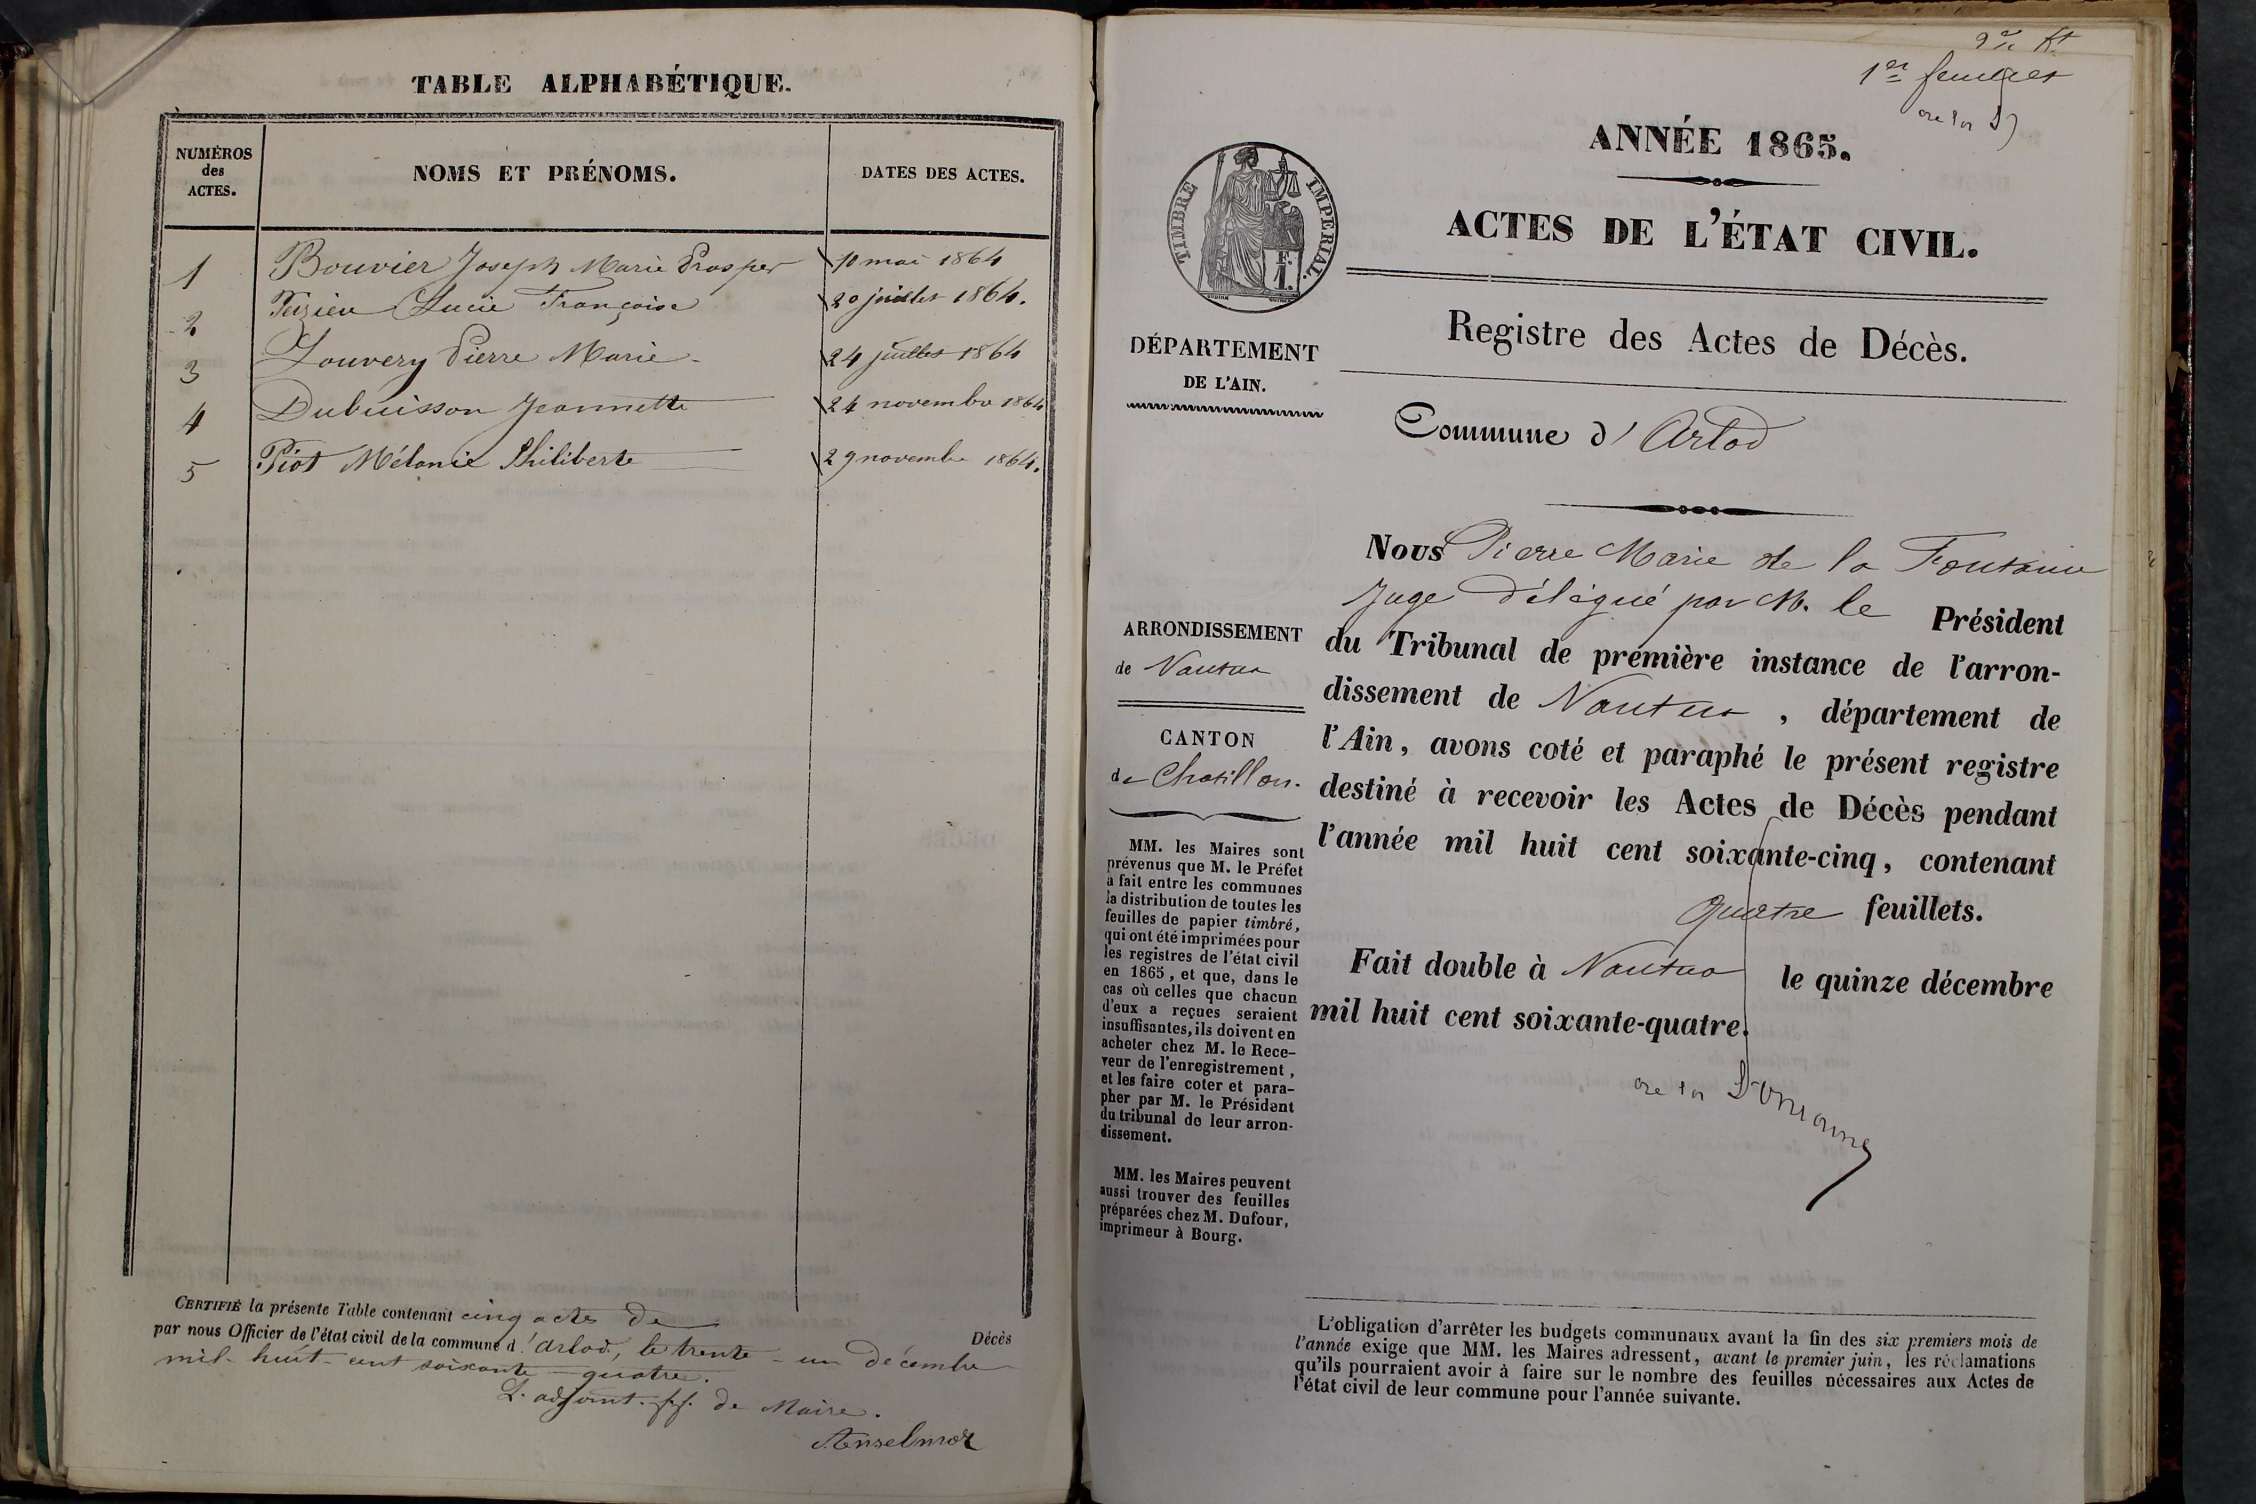 TABLE ALPHABÉTIQUE.
NUMÉROS
des
ACTES.
NOMS ET PRÉNOMS.
DATES DES ACTES.
1 Bouvier Joseph Marie Prosper 10 mai 1864
2 Teizieu Lucie Françoise 20 juillet 1864.
3 Louvery Pierre Marie 24 juillet 1864
4 Dubuisson Jeannette 24 novembre 1864
5 Piot Mélanie Philiberte 29 novembre 1864.
CERTIFIÉ la présente Table contenant cinq actes de Décès
par nous Officier de l'état civil de la commune d'Arlod, le trente-un décembre
mil-huit-cent soixante-quatre.
L'adjoint ff. de Maire.
Anselmoz
1er feuillet
ANNÉE 1865.
TIMBRE IMPÉRIAL.
F.
1.
ACTES DE L'ÉTAT CIVIL.
Registre des Actes de Décès.
DÉPARTEMENT
DE L'AIN.
Commune d'Arlod
ARRONDISSEMENT
de Nantua
CANTON
de Chatillon.
MM. les Maires sont
prévenus que M. le Préfet
a fait entre les communes
la distribution de toutes les
feuilles de papier timbré,
qui ont été imprimées pour
les registres de l'état civil
en 1865, et que, dans le
cas où celles que chacun
d'eux a reçues seraient
insuffisantes, ils doivent en
acheter chez M. le Rece-
veur de l'enregistrement,
et les faire coter et para-
pher par M. le Président
du tribunal de leur arron-
dissement.
MM. les Maires peuvent
aussi trouver des feuilles
préparées chez M. Dufour,
imprimeur à Bourg.
Nous Pierre Marie de la Fontaine
Juge délégué par M. le Président
du Tribunal de première instance de l'arron-
dissement de Nantua, département de
l'Ain, avons coté et paraphé le présent registre
destiné à recevoir les Actes de Décès pendant
l'année mil huit cent soixante-cinq, contenant
quatre feuillets.
Fait double à Nantua le quinze décembre
mil huit cent soixante-quatre.
L'obligation d'arrêter les budgets communaux avant la fin des six premiers mois de
l'année exige que MM. les Maires adressent, avant le premier juin, les réclamations
qu'ils pourraient avoir à faire sur le nombre des feuilles nécessaires aux Actes de
l'état civil de leur commune pour l'année suivante.